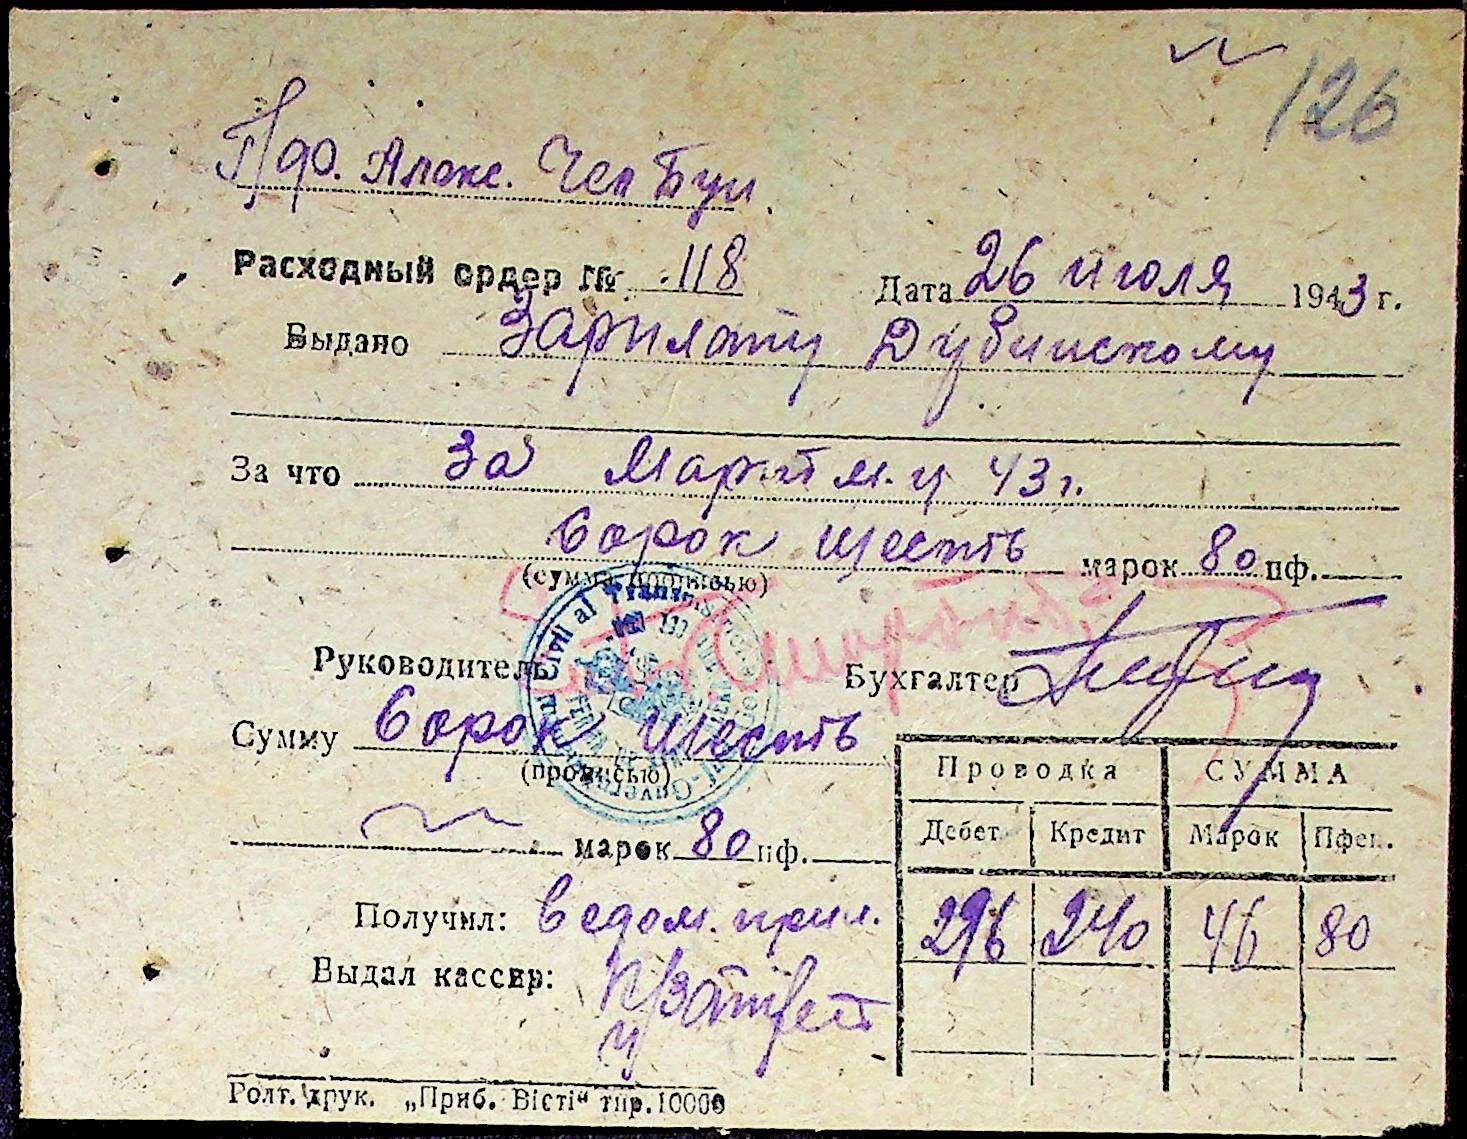 126
Алекс.
Расходный ордер № 118 Дата 26 июля 1943 г.
Выдано Зарплату Дубинскому
За что За Март м-ц 43 г.
Сорок шесть марок 80 пф.
(сумма прописью)
Руководитель Бухгалтер
Сумму Сорок шесть
(прописью)
марок 80 пф.
Проводка СУММА
Дебет Кредит Марок Пфен.
296 240 46 80
Получил: ведом. прил.
Выдал кассир:
Ролт. друк. „Приб. Вісті“ тир. 10000